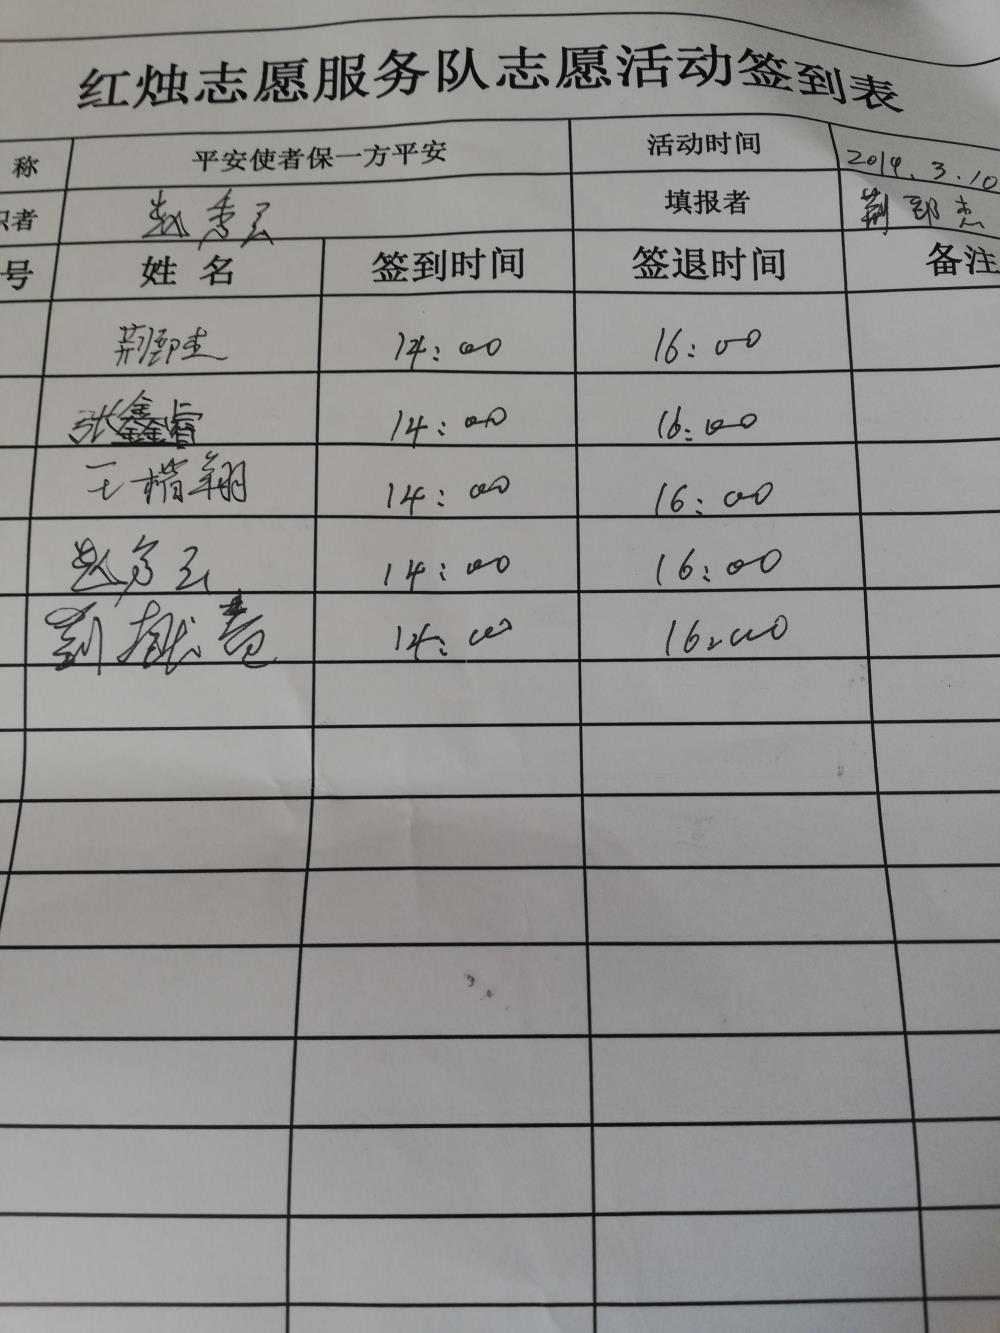 红烛志愿服务队志愿活动签到表
称 平安使者保一方平安 活动时间 2019.3.10
织者 赵秀云 填报者 荆郅杰
号 姓名 签到时间 签退时间 备注
荆郅杰 14:00 16:00
张鑫睿 14:00 16:00
王楷翔 14:00 16:00
赵秀云 14:00 16:00
14:00 16:00